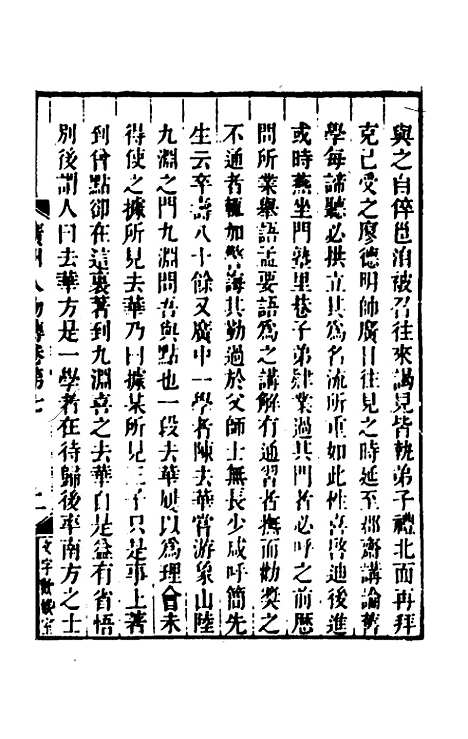 與之自倅邕洎被召往來謁見皆執弟子禮北面再拜
克己受之廖德明帥廣日往見之時延至郡齋講論舊
學每諦聽必拱立其爲名流所重如此性喜啓迪後進
或時燕坐門塾里巷子弟肄業過其門者必呼之前歷
問所業舉語孟要語爲之講解有通習者撫而勸奬之
不通者極加警誨其勤過於父師士無長少咸呼簡先
生云卒壽八十餘又廣中一學者陳去華嘗游象山陸
九淵之門九淵問吾與點也一段去華屢以爲理會未
得使之據所見去華乃曰據某所見三子只是事上著
到曾點卻在這裏著到九淵喜之去華自是益有省悟
別後謂人曰去華方是一學者在待歸後率南方之士
廣州人物傳卷第七
二
文字歡娛室